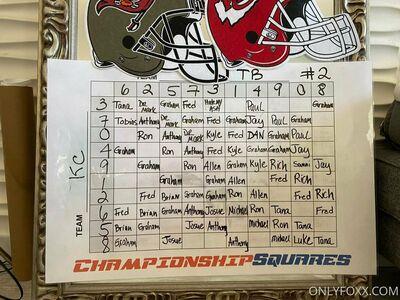 TEAM TB #2
6 2 5 7 3 1 4 9 0 8
3 Tana De Mark Graham Fred Paul Graham
7 Tobias Anthony De Mark Graham Fred Graham Jay Paul Graham
0 Ron Anthony De Mark Kyle Fred DAN Graham Paul
4 Graham Ron Anthony Fred Kyle Graham Graham Jay
9 Ron Allen Graham Kyle Rich Jay
1 Graham Graham Allen Fred Rich
2 Fred Brian Graham Ron Allen Fred Rich
6 Fred Brian Graham Anthony Josue Michael Ron Tana Fred
5 Brian Graham Josue Anthony Michael Ron Tana
8 Graham Josue Anthony Michael Luke Tana
TEAM KC
CHAMPIONSHIP SQUARES
ONLYFOXX.COM